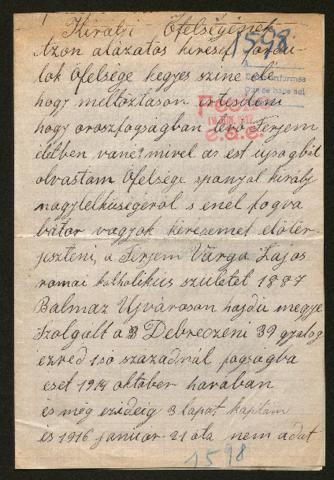 Királyi Őfelségének
1598.
Azon alázatos kéréssel fordu
lok Őfelsége kegyes szine elé
hogy méltóztason értesiteni
hogy oroszfogságban levő Férjem
életben vané? mivel az est ujságbul
olvastam Őfelsége spanyol király
nagylelküségéröl s enél fogva
bátor vagyok kérésemet előter
jeszteni, a Férjem Varga Lajos
romai katholikus született 1887
Balmaz Ujvároson hajdu megye
Szolgált a 3 Debreczeni 39 gyalog
ezred 1 ső századnál fogságba
eset 1914 oktober havában
és még ezideig 3 lapot kaptam
és 1916 januar 21 óta nem adat
1598